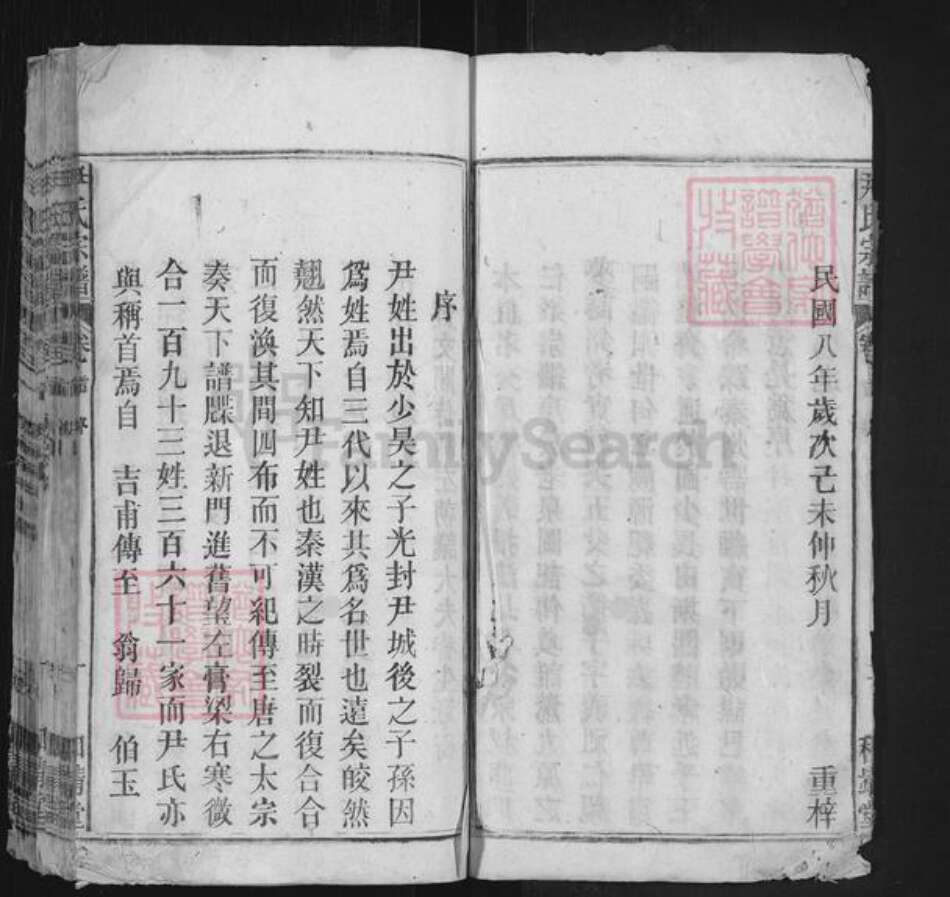 民國八年歲次己未仲秋月 重梓
序
尹姓出於少昊之子光封尹城後之子孫因
爲姓焉自三代以來其爲名世也遠矣皎然
翹然天下知尹姓也秦漢之時裂而復合合
而復渙其間四布而不可紀傳至唐之太宗
奏天下譜牒退新門進舊望左膏梁右寒微
合一百九十三姓三百六十一家而尹氏亦
與稱首焉自 吉甫傳至 翁歸 伯玉
尹氏宗譜
FamilySearch